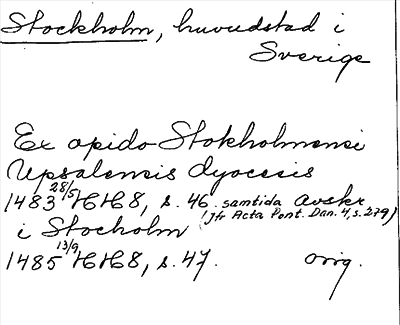 Stockholm, huvudstad i
Sverige
Ex opido Stokholmensi
Upsalensis dyocesis
1483 28/5 HH8, s. 46. samtida avskr
(Jfr Acta Pont. Dan. 4, s. 279)
i Stocholm
1485 13/9 HH8, s. 47. orig.